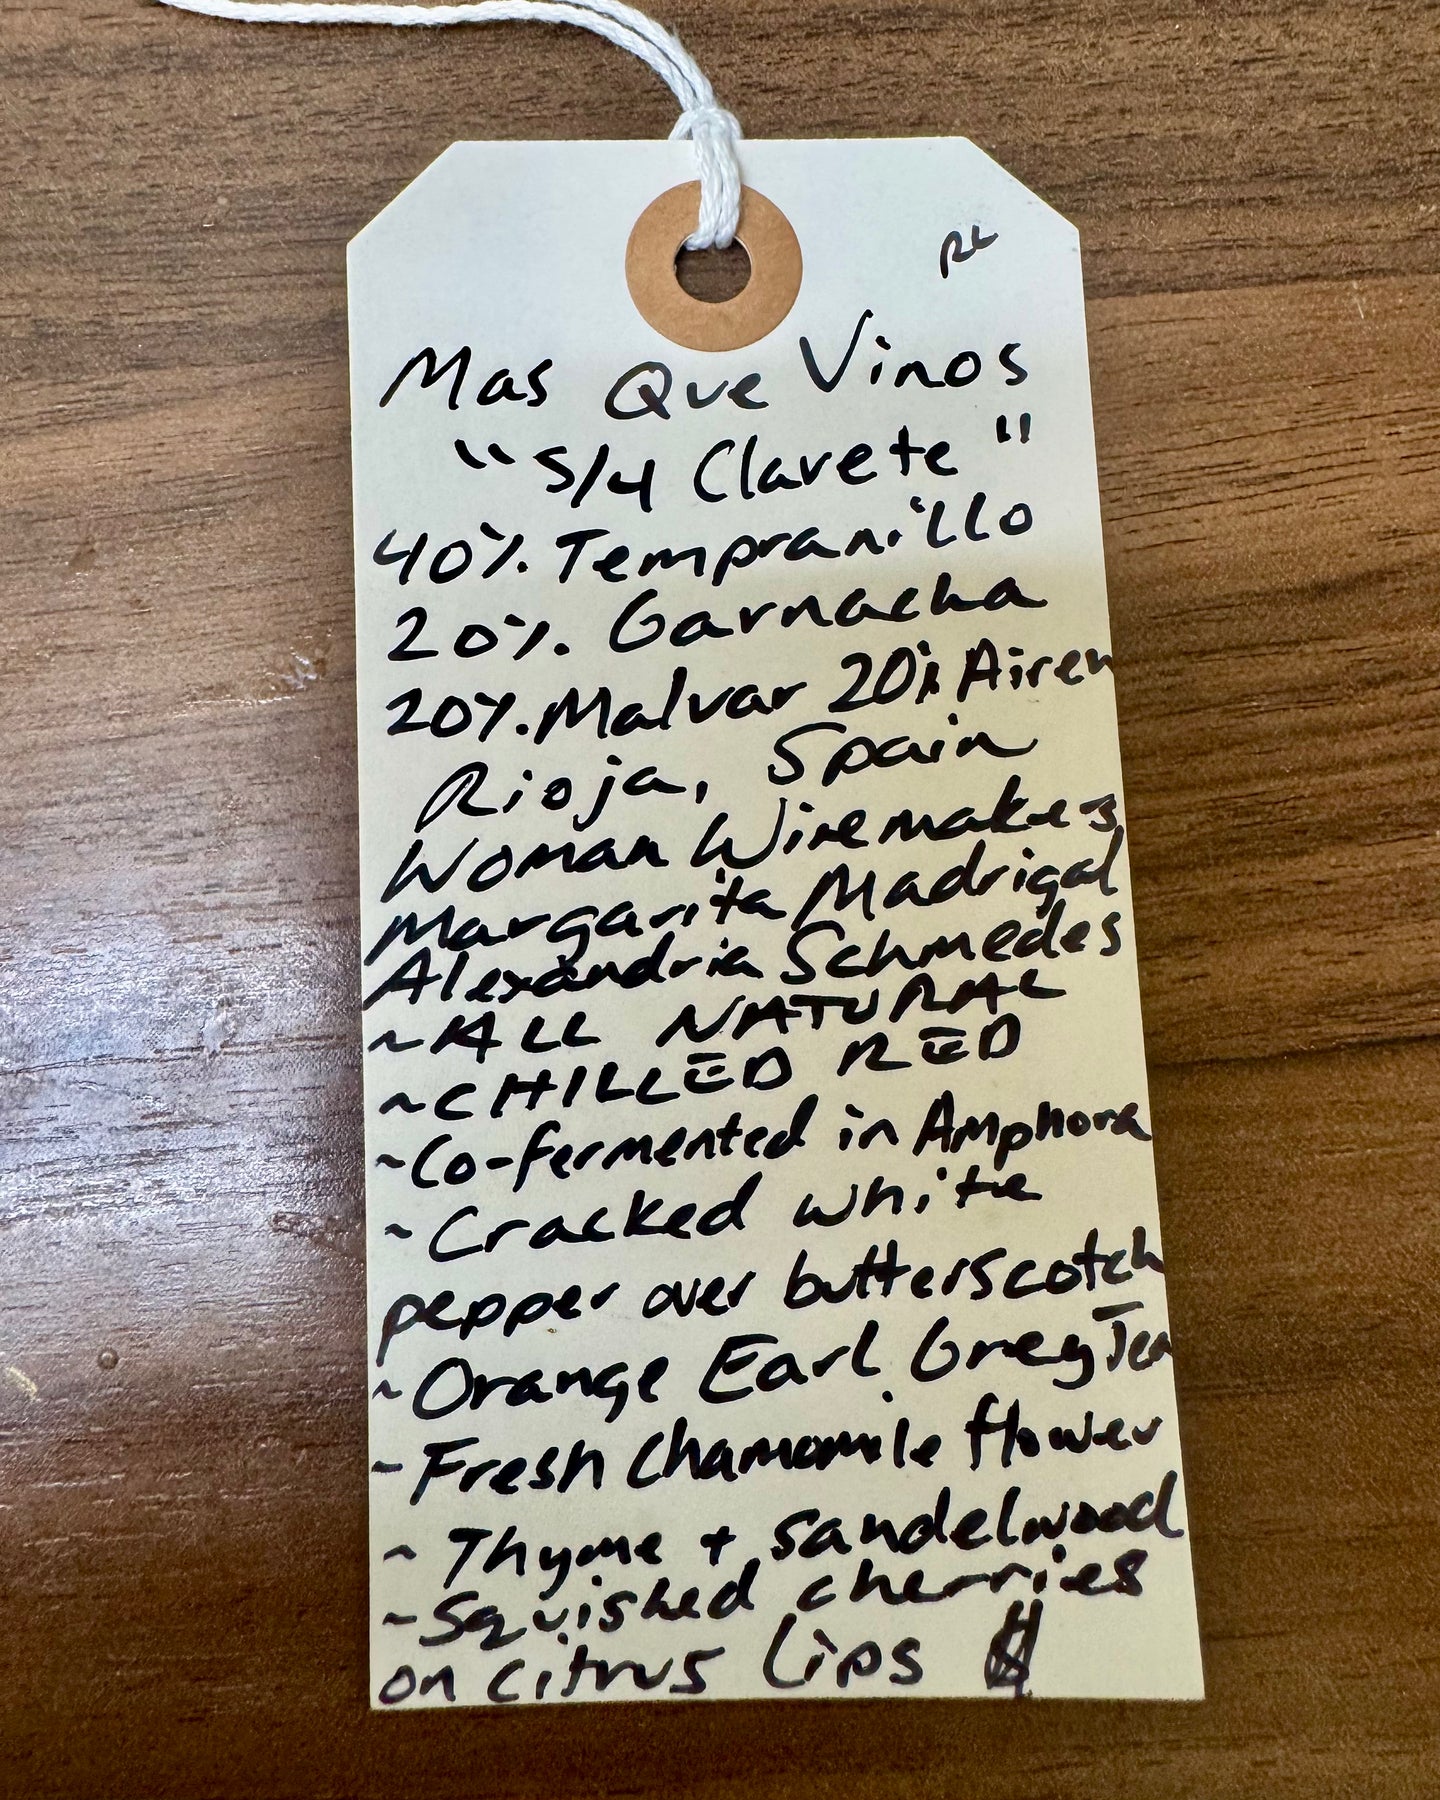 RL
Mas Que Vinos
"S/4 Clarete"
40% Tempranillo
20% Garnacha
20% Malvar 20% Airen
Rioja, Spain
Woman Winemakers
Margarita Madrigal
Alexandria Schmedes
~ALL NATURAL
~CHILLED RED
~Co-fermented in Amphora
~Cracked white
pepper over butterscotch
~Orange Earl Grey Tea
~Fresh Chamomile flower
~Thyme + Sandelwood
~Squished cherries
on citrus Lips